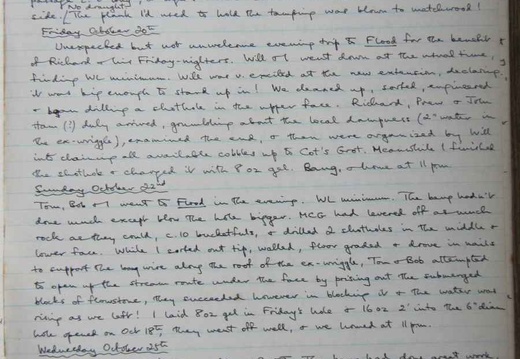 side. [The plank I'd used to hold the tamping was blown to matchwood!
No draught
Friday October 20th
Unexpected but not unwelcome evening trip to Flood for the benefit
of Richard & his Friday-nighters. Will & I went down at the usual time,
finding WL minimum. Will was v. excited at the new extension, declaring
it was big enough to stand up in! We cleared up, sorted, engineered
& began drilling a shothole in the upper face. Richard, Prew & John
Ham (!) duly arrived, grumbling about the local dampness (2" water in
the ex-wriggle), examined the end, & then were organized by Will
into claiming all available cobbles up to Cot's Grot. Meanwhile I finished
the shothole & charged it with 8 oz gel. Bang, & home at 11 pm.
Sunday October 22nd
Tom, Bob & I went to Flood in the evening. WL minimum. The bang hadn't
done much except blow the hole bigger. MCG had levered off as much
rock as they could, c.10 bucketfuls, & drilled 2 shotholes in the middle &
lower face. While I sorted out tip, walled, floor graded & drove in nails
to support the bang wire along the roof of the ex-wriggle, Tom & Bob attempted
to open up the stream route under the face by prising out the submerged
blocks of flowstone, they succeeded however in blocking it & the water was
rising as we left! I laid 8oz gel in Friday's hole & 16 oz 2' into the 6" diam
hole opened on Oct 18th, they went off well, & we homed at 11 pm.
Wednesday October 25th